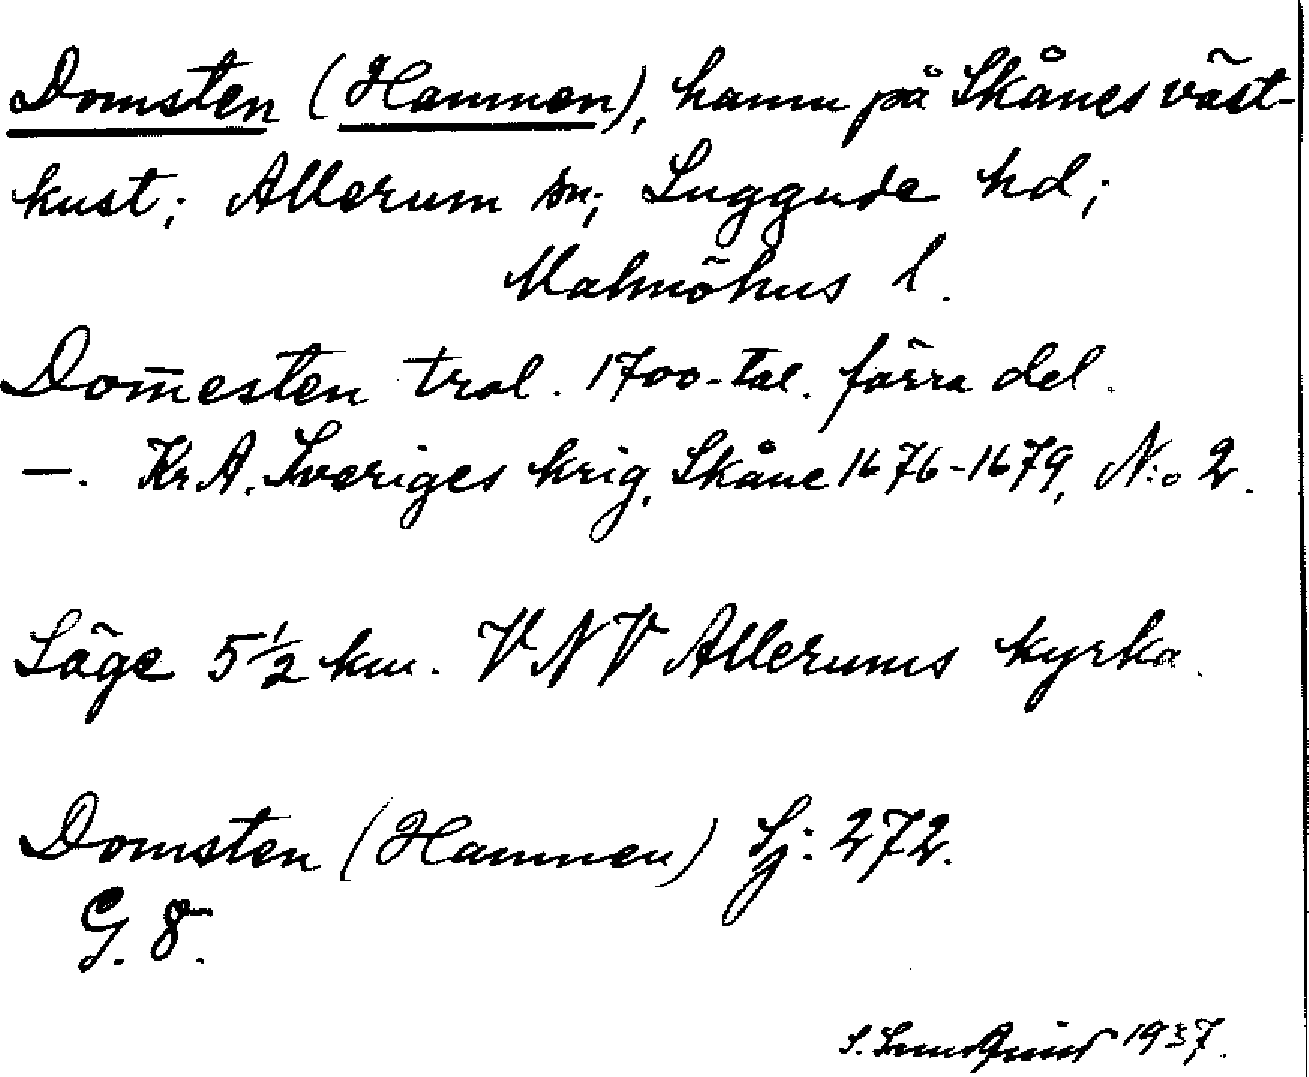 Domsten (Hamnen), hamn på Skånes väst-
kust; Allerum sn; Luggude hd;
Malmöhus l.
Dom̅esten trol. 1700-tal. förra del.
—. Kr A. Sveriges krig, Skåne 1676-1679, N:o 2.
Läge 5 1/2 km. VNV Allerums kyrka.
Domsten (Hamnen) Sj: 272.
G. 8.
S. Lundquist 1937.